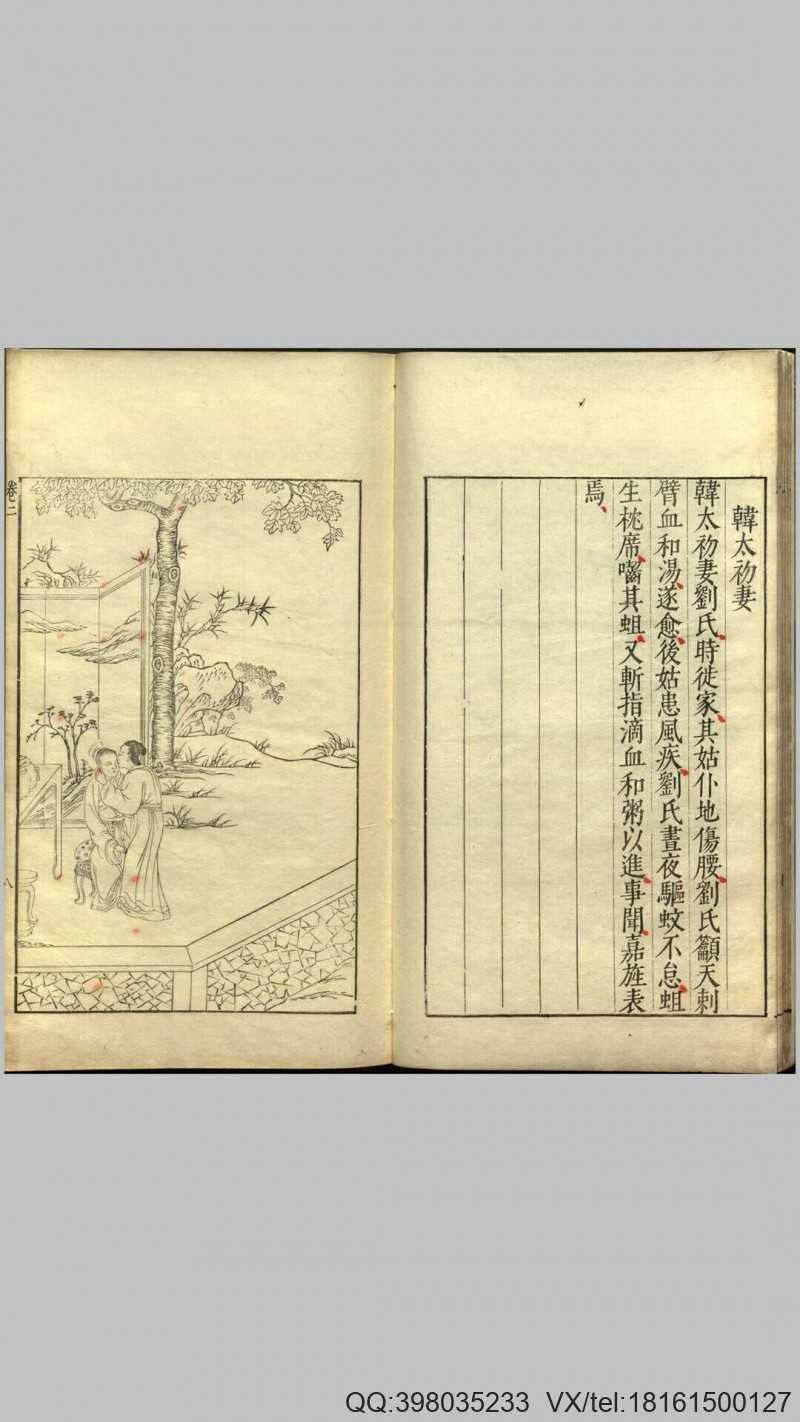 韓太初妻
韓太初妻劉氏、時徙家、其姑仆地傷腰、劉氏籲天刺
臂血和湯、遂愈、後姑患風疾、劉氏晝夜驅蚊不怠、蛆
生枕席、嚙其蛆、又斬指滴血和粥以進、事聞、嘉旌表
焉、
卷二
八
QQ:398035233 VX/tel:18161500127